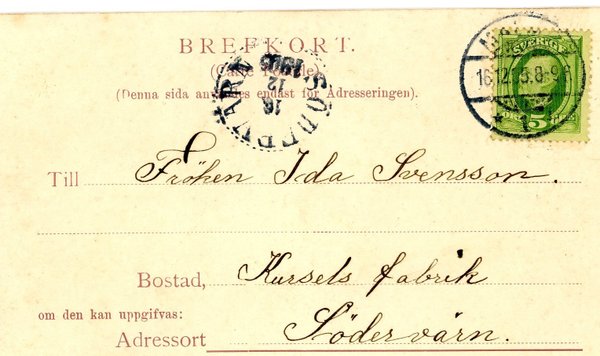 BREFKORT.
(Carte Postale)
(Denna sida användes endast för Adresseringen).
SÖDERVÄRN
16
12
1905
16.12.05.8-9F
1
SVERIGE
5
Till Fröken Ida Svensson.
Bostad, Kursels fabrik
om den kan uppgifvas:
Adressort Södervärn.